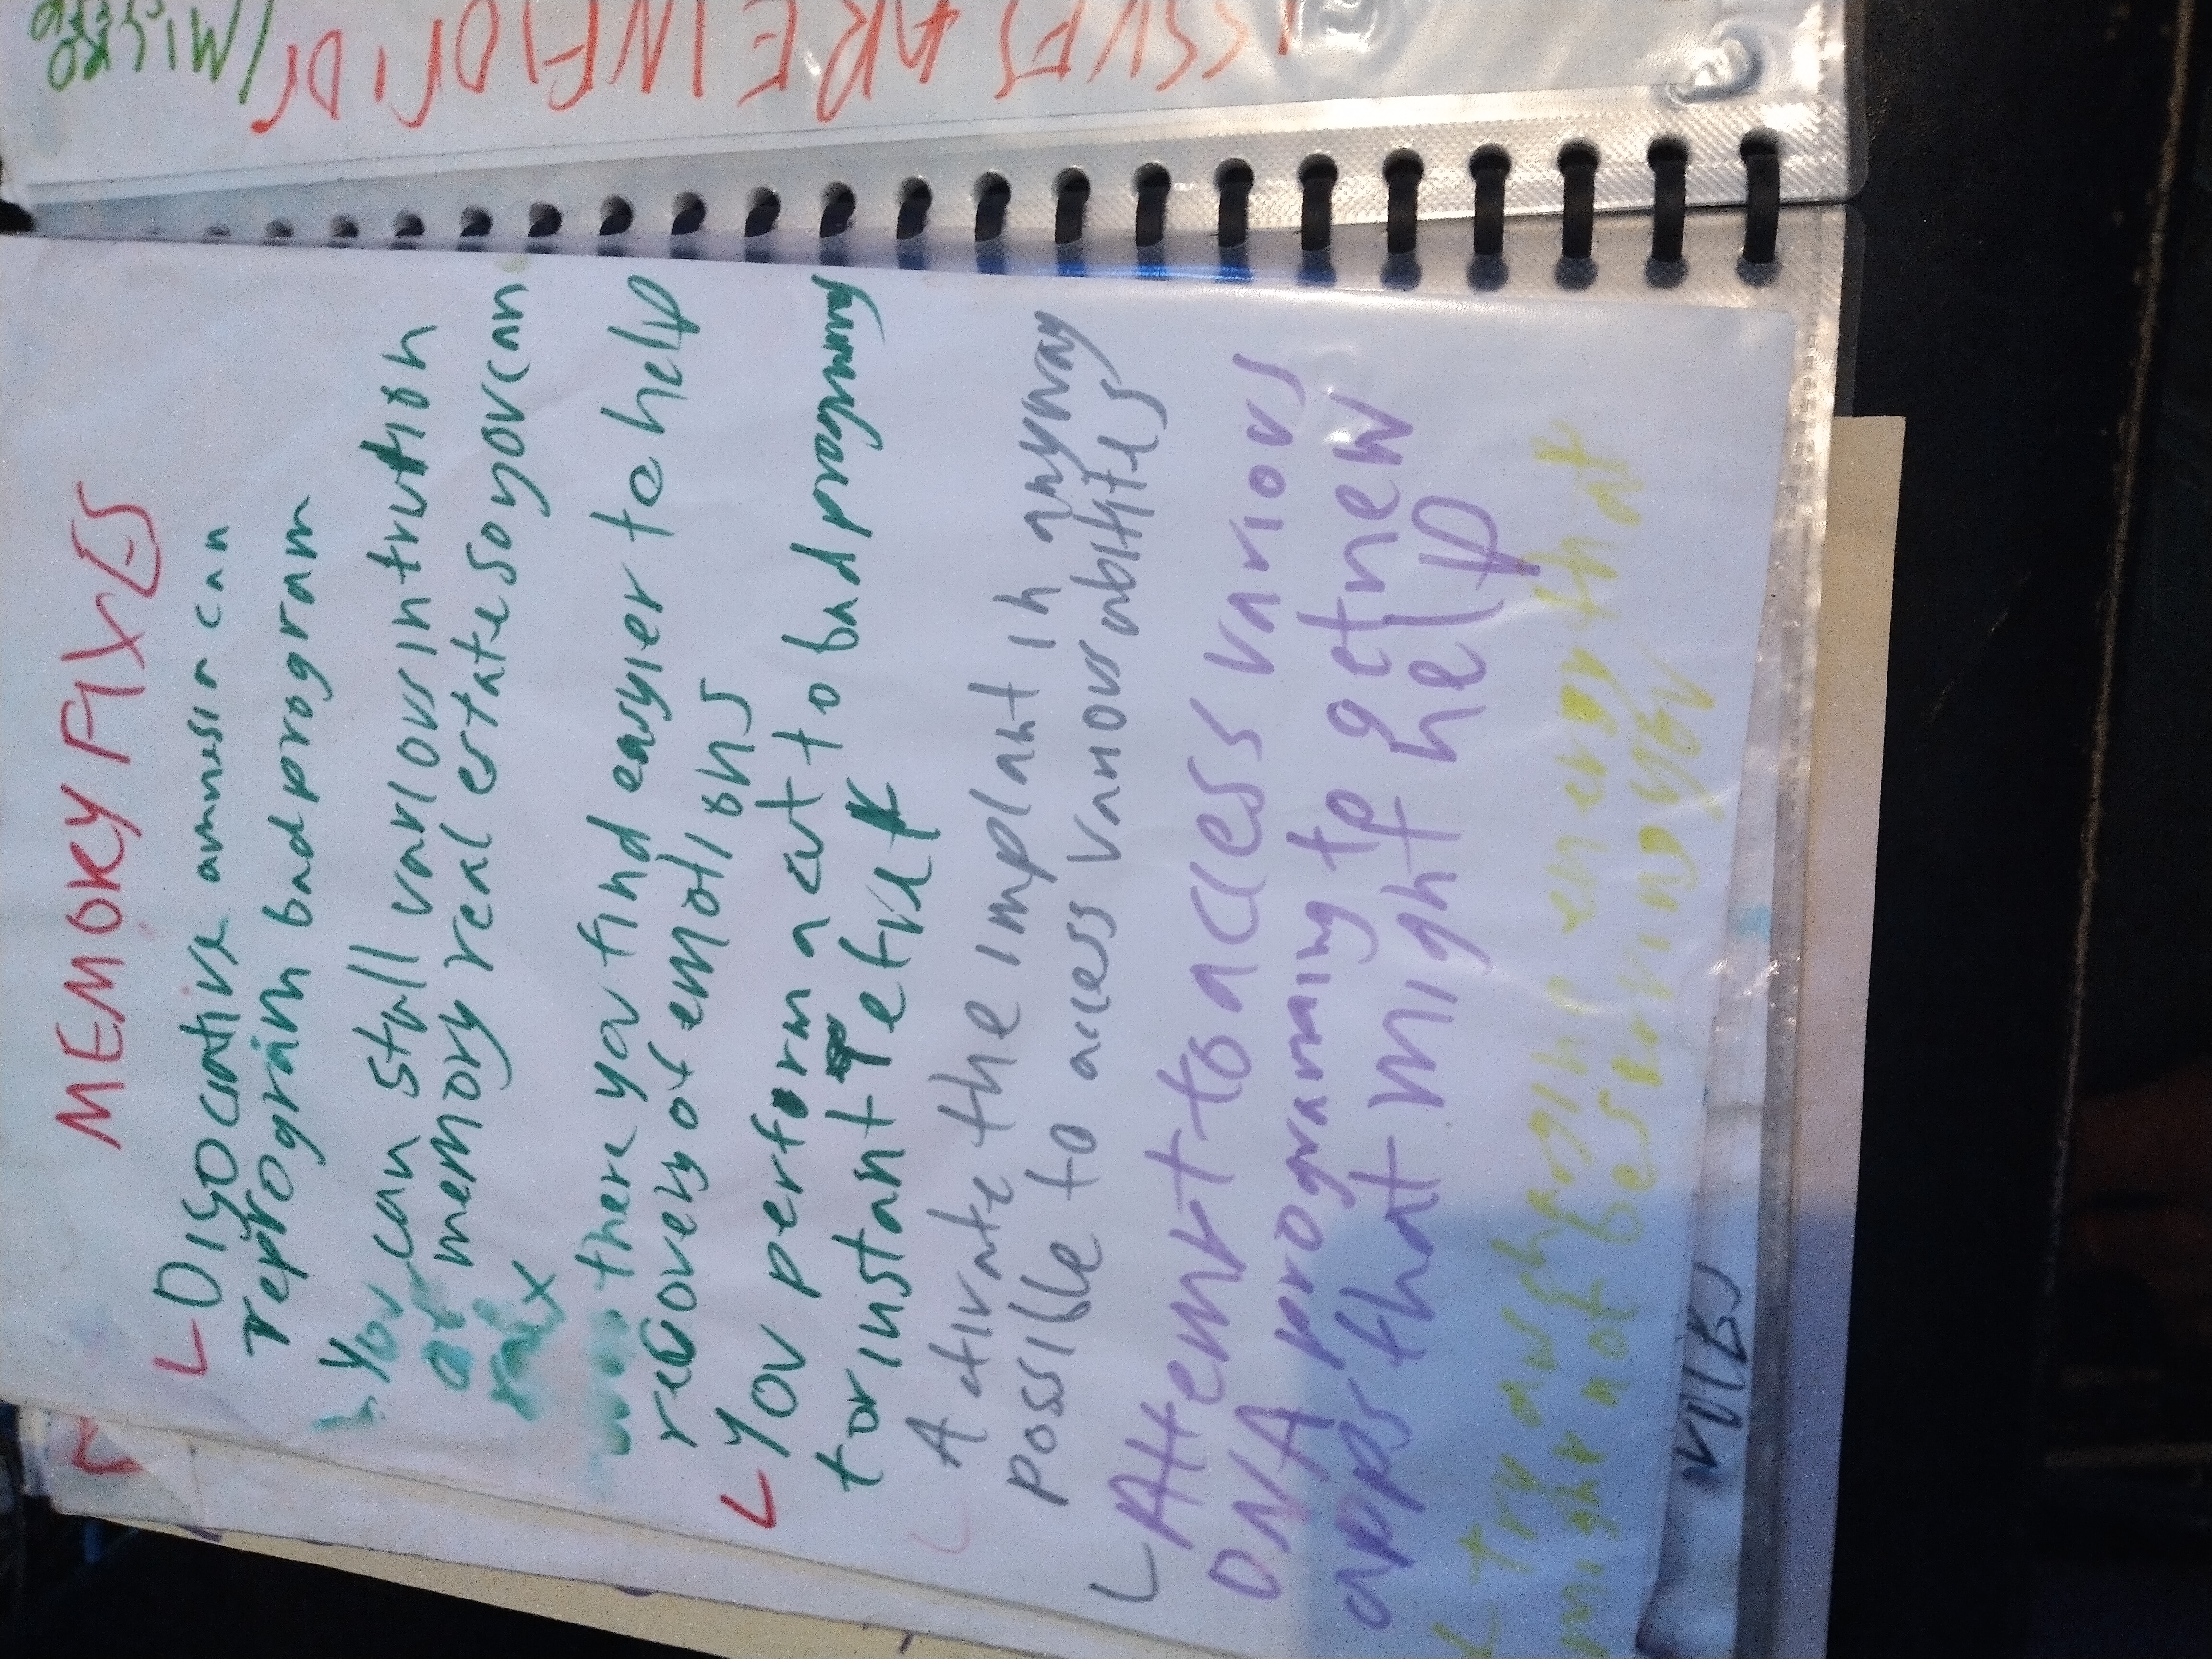 MEMORY FIXES
DISOCIATIVE amnesia can
reprogram bad program
You can stall various intrution
at memory real estate so you can
relax
there you find easyier to help
recovery of emotions
You perform a cut to bad programmg
for instant efect
Activate the implant in anyway
possible to access various abilites
Attempt to access various
DNA programing to get new
apps that might help
try awsh energy that
might not be serving you
ISSUES ARE IN